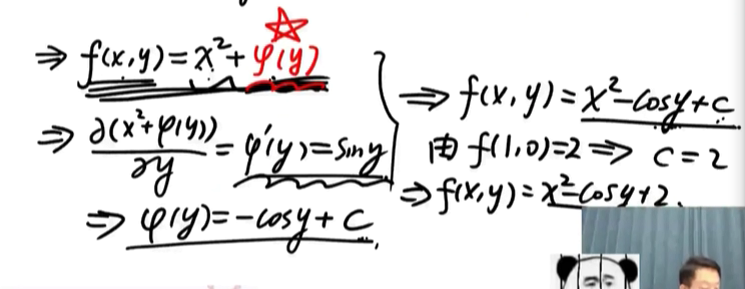 ⇒ f(x,y)=x²+φ(y)
⇒ ∂(x²+φ(y))/∂y = φ'(y)=siny
⇒ φ(y)=-cosy+C.
⇒ f(x,y)=x²-cosy+C
由 f(1,0)=2 ⇒ C=2
⇒ f(x,y)=x²-cosy+2.